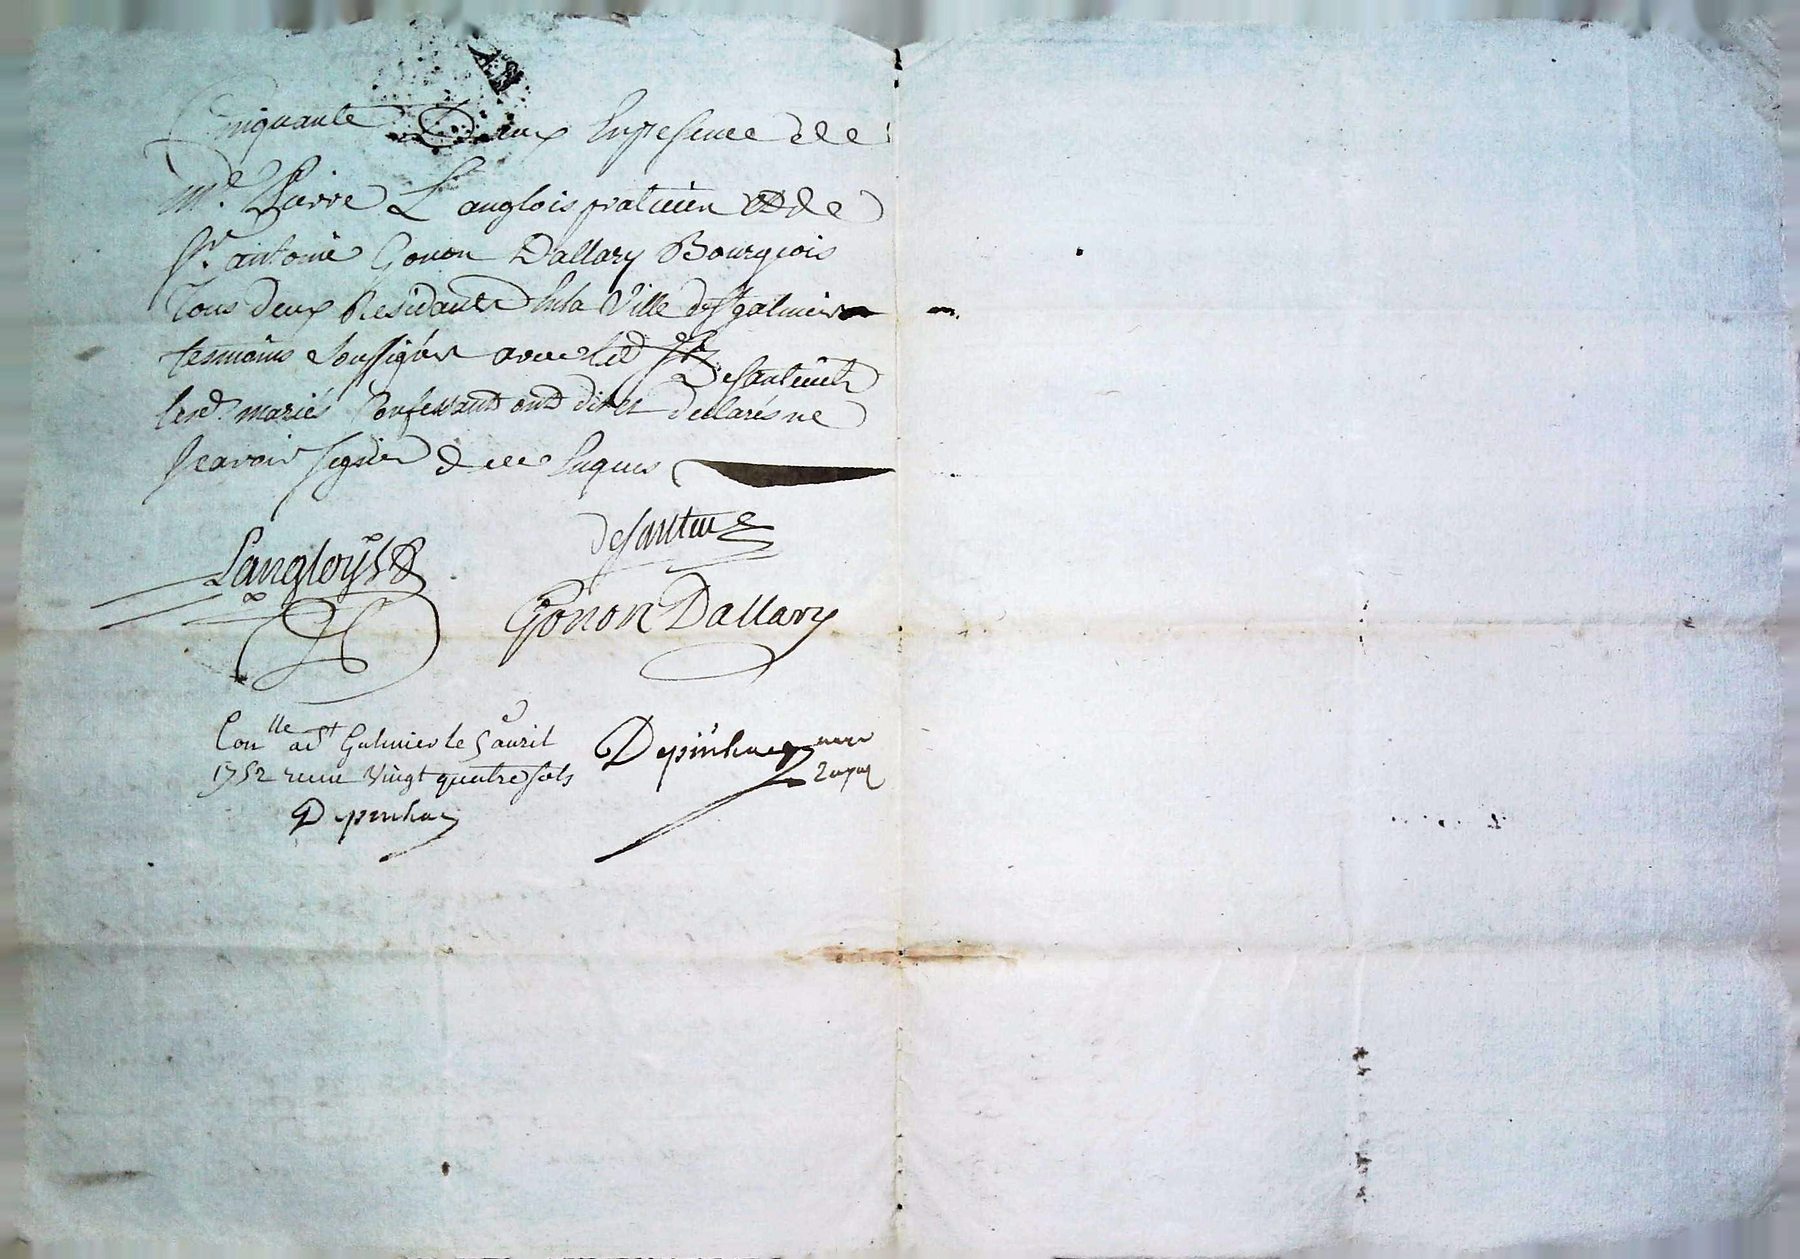 Cinquante Deux En presence de
Me. Pierre L'anglois praticien et de
Sr. antoine Gonon Dallary Bourgeois
Tous deux Residants En la Ville de St galmier
tesmoins Soussignés avec led Sr Desauteults
Les d. mariés Confessants ont dit et declarés ne
Scavoir signer de ce Enquis
desautu
Langloys
Gonon Dallary
Conlle a St Galmier le 5 avril
1752 recu Vingt quatre sols
Depinhac
Depinhac